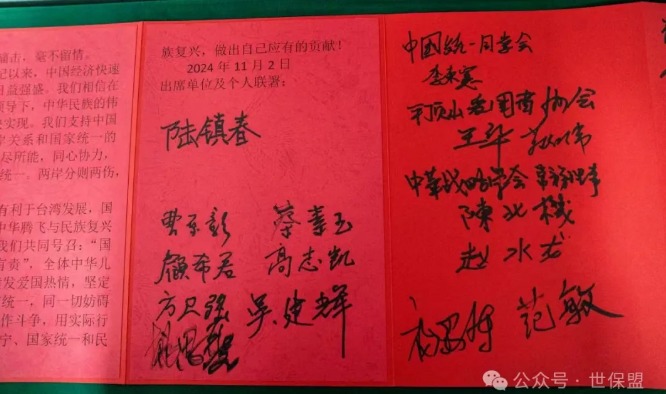 痛击，毫不留情。
记以来，中国经济快速
日益强盛。我们相信在
领导下，中华民族的伟
实现。我们支持中国
家关系和国家统一的
尽所能，同心协力，
统一。两岸分则两伤，
有利于台湾发展，国
中华腾飞与民族复兴
我们共同号召：“国
有责”．全体中华儿
发爱国热情，坚定
统一，同一切妨碍
作斗争，用实际行
宇、国家统一和民
族复兴，做出自己应有的贡献！
2024 年 11 月 2 日
出席单位及个人联署：
陆镇春
蔡素玉
顾希君 高志凯
方卫强 吴建辉
中国统一同学会
李来宽
平顶山爱国商协会
王华
中華战略学会常務理事
陳北機
赵水龙
范敏
公众号·世保盟